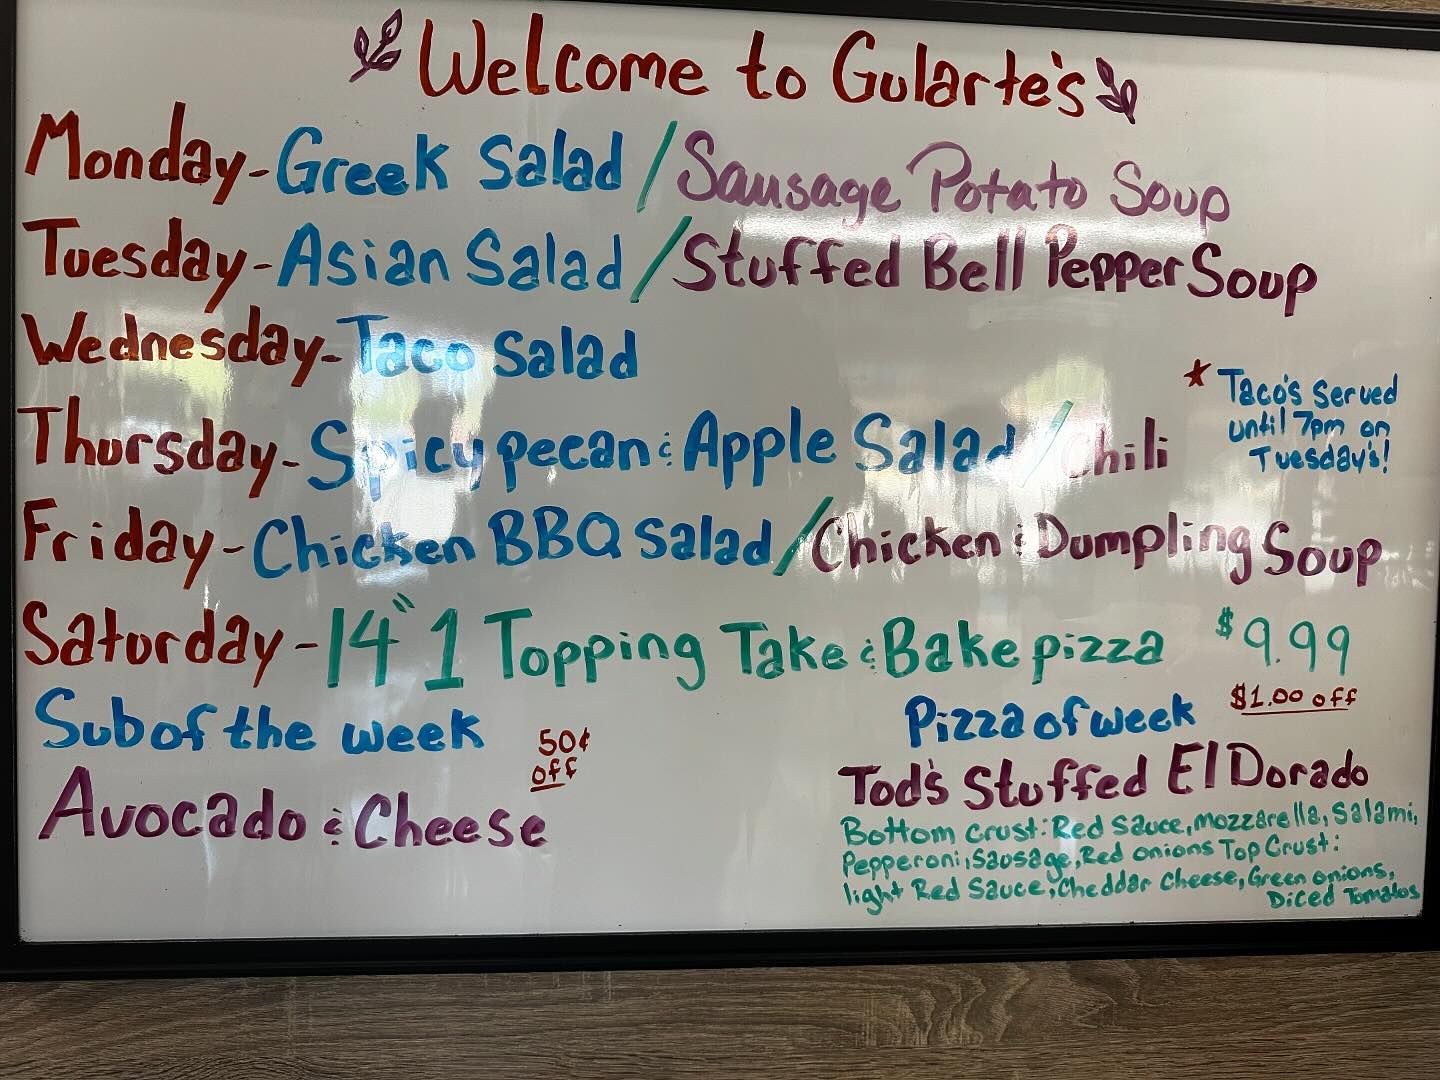 Welcome to Gularte's
Monday - Greek Salad / Sausage Potato Soup
Tuesday - Asian Salad / Stuffed Bell Pepper Soup
Wednesday - Taco Salad
* Taco's Served
until 7pm on
Tuesday's!
Thursday - Spicy pecan & Apple Salad / Chili
Friday - Chicken BBQ Salad / Chicken & Dumpling Soup
Saturday - 14" 1 Topping Take & Bake pizza $9.99
Sub of the week 50¢ off
Avocado & Cheese
Pizza of week $1.00 off
Tod's Stuffed El Dorado
Bottom crust: Red Sauce, mozzarella, Salami,
Pepperoni, Sausage, Red onions Top Crust:
light Red Sauce, Cheddar cheese, Green onions,
Diced Tomatos